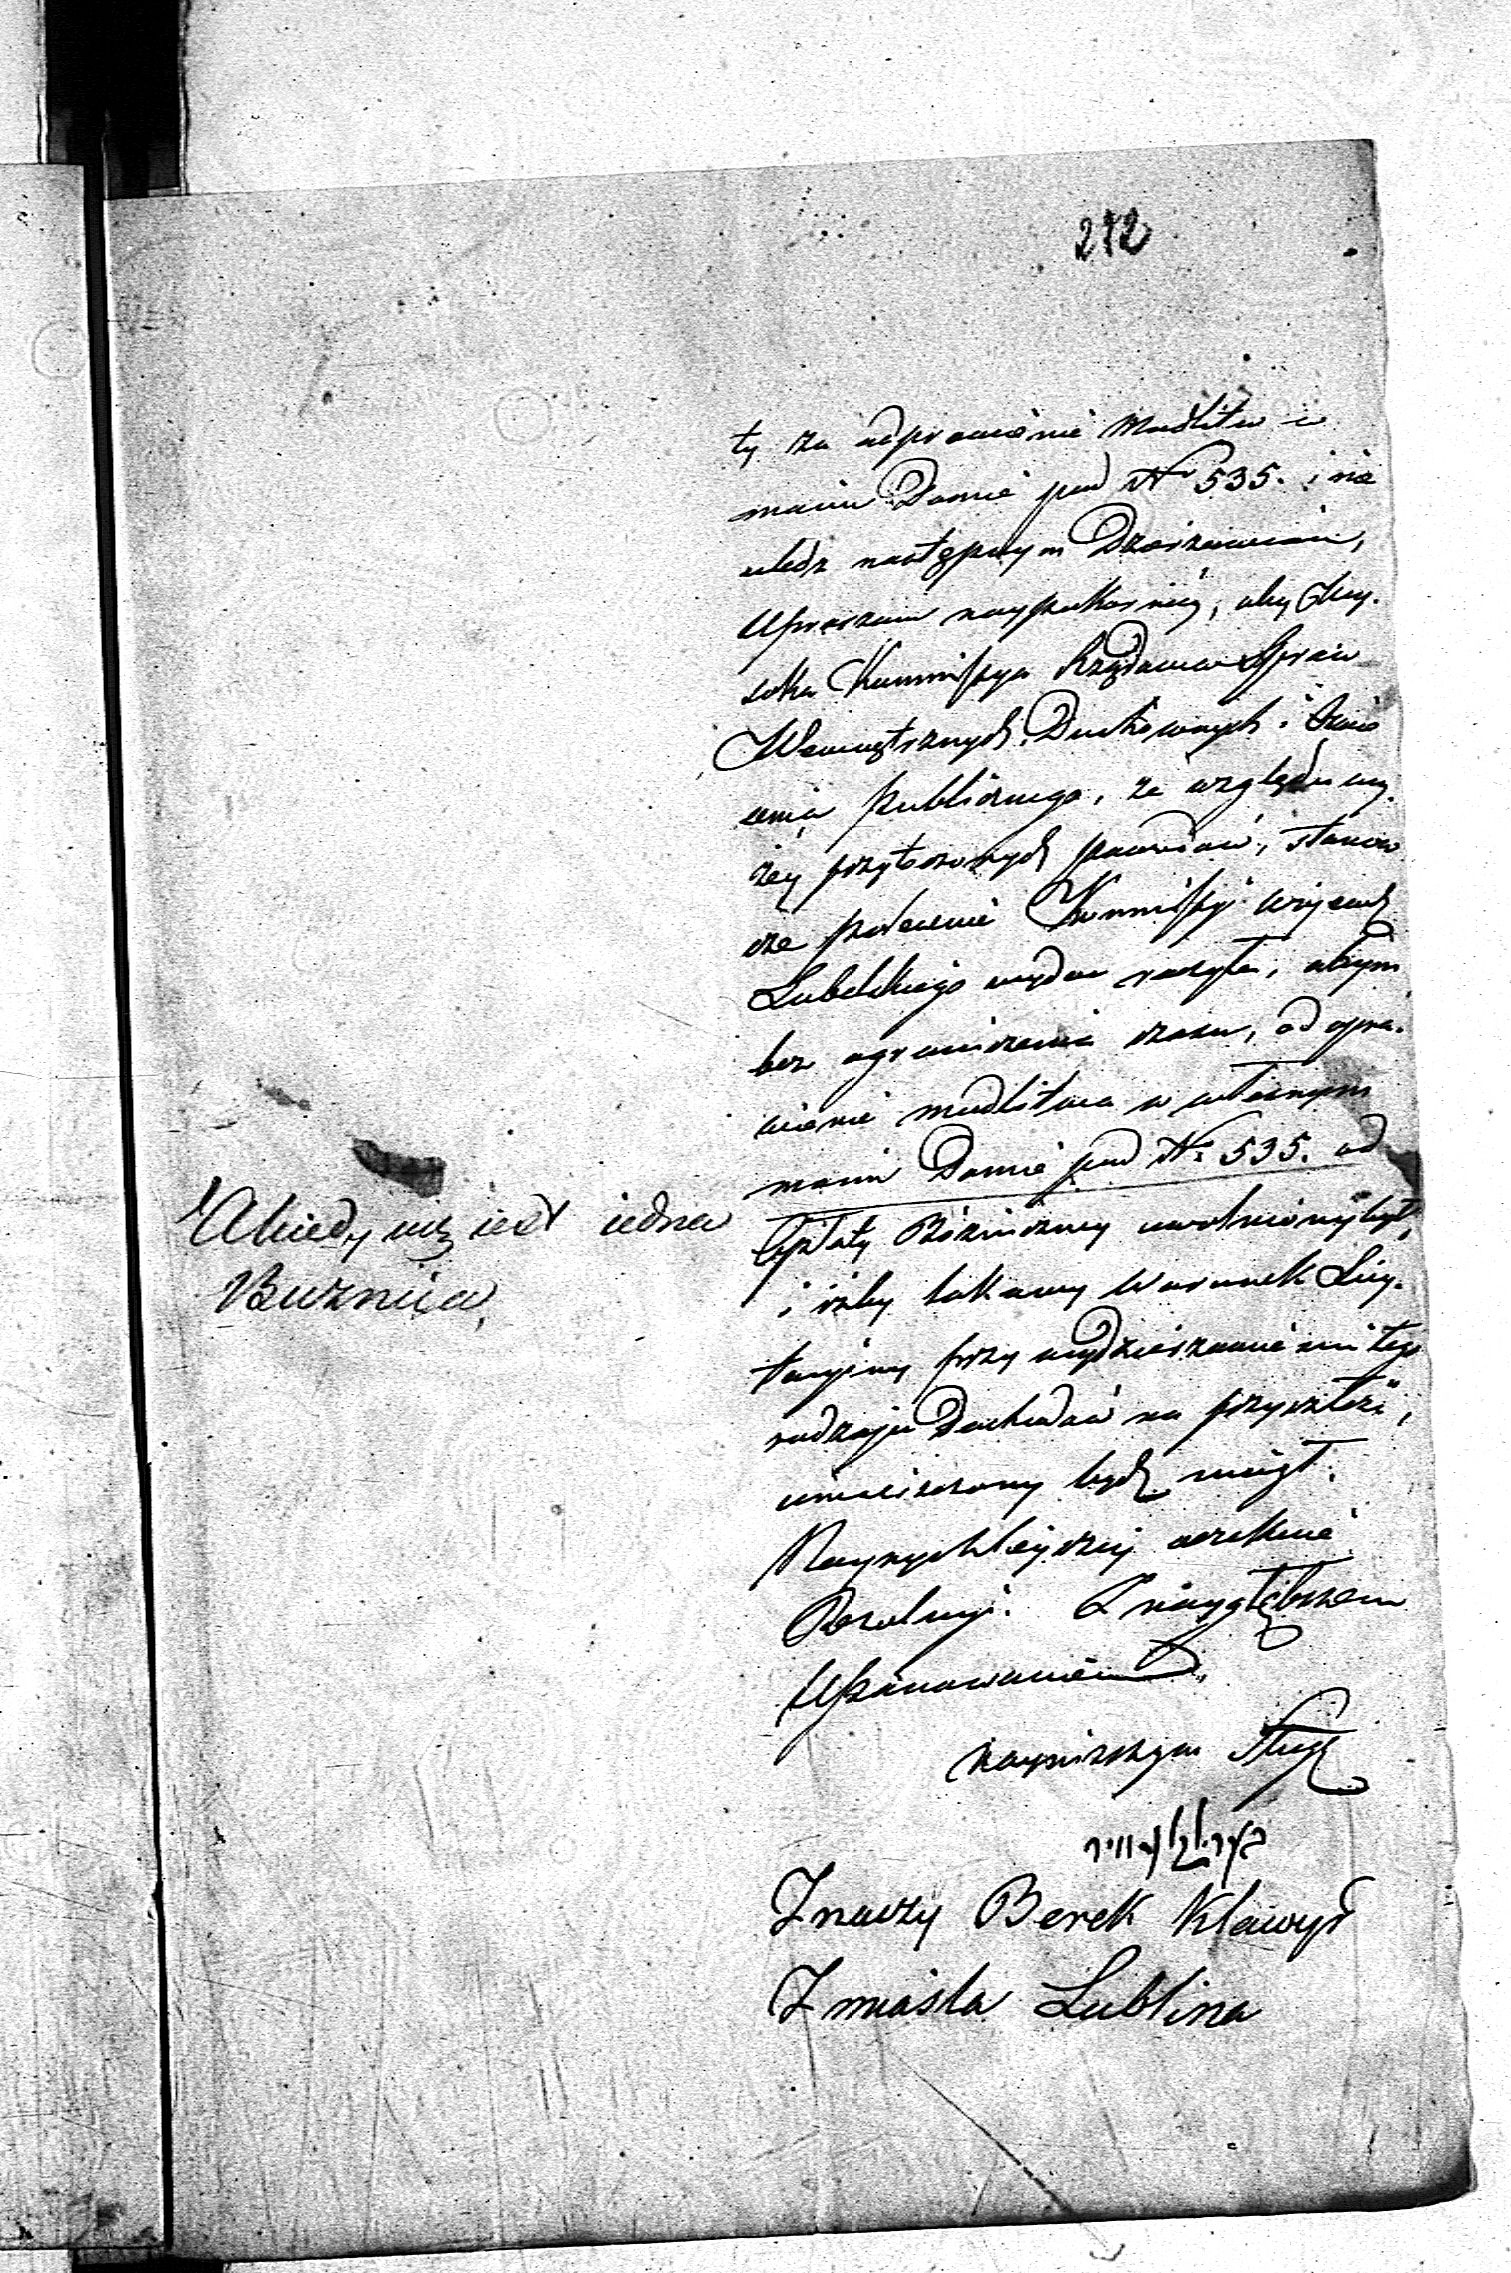 242
ty za odprawienie modlitw w
moim Domie pod Nr 535. i nie
uledz następnym Dzierzawcom,
Upraszam naypokorniey, aby Wy-
soka Kommissya Rządowa Spraw
Wewnętrznych, Duchownych i Oświe
cenia publicznego, ze względu wy-
żey przytoczonych powodów, stanow
cze polecenie Kommissyi Woiewodz
Lubelskiego wydać raczyła, abym
bez ograniczenia czasu, od opra-
wienie modlitwa w własnym
moim Domie pod Nr 535. od
Opłaty Bóżniczney uwolniony był,
i żeby takowy Warunek Licy-
tacyiny przy wydzierzawieniu tego
rodzaju Dochodów na przyszłość,
umieszczony bydź mógł.
Nayrychleyszey oczekuie
Rezolucyi. Z nayglębszem
Uszanowaniem
nayniższym Sługą
Znaczy Berek Klawyr
Z miasta Lublina
A kiedy niz iest iedna
Buznica